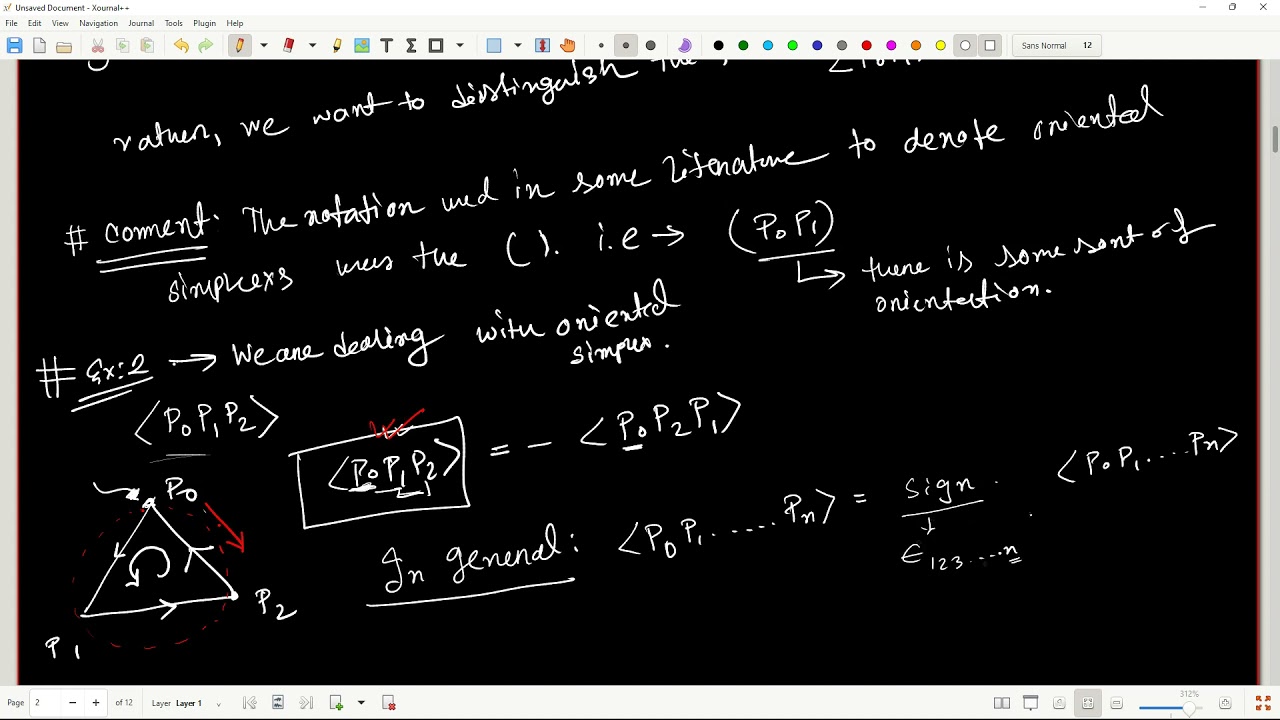 Unsaved Document - Xournal++
File Edit View Navigation Journal Tools Plugin Help
Sans Normal 12
rather, we want to distinguish the
# Comment: The notation used in some literature to denote oriented
simplexs uses the ( ). i.e → (P₀P₁)
↳ there is some sort of
orientation.
# Ex:2 → We are dealing with oriented
simplex.
⟨P₀P₁P₂⟩
⟨P₀P₁P₂⟩ = - ⟨P₀P₂P₁⟩
P₀
In general: ⟨P₀P₁.......Pₙ⟩ = sign . ⟨P₀P₁.....Pₙ⟩
↓
ϵ₁₂₃.....ₙ
P₂
P₁
Page 2 − + of 12 Layer Layer 1
312%